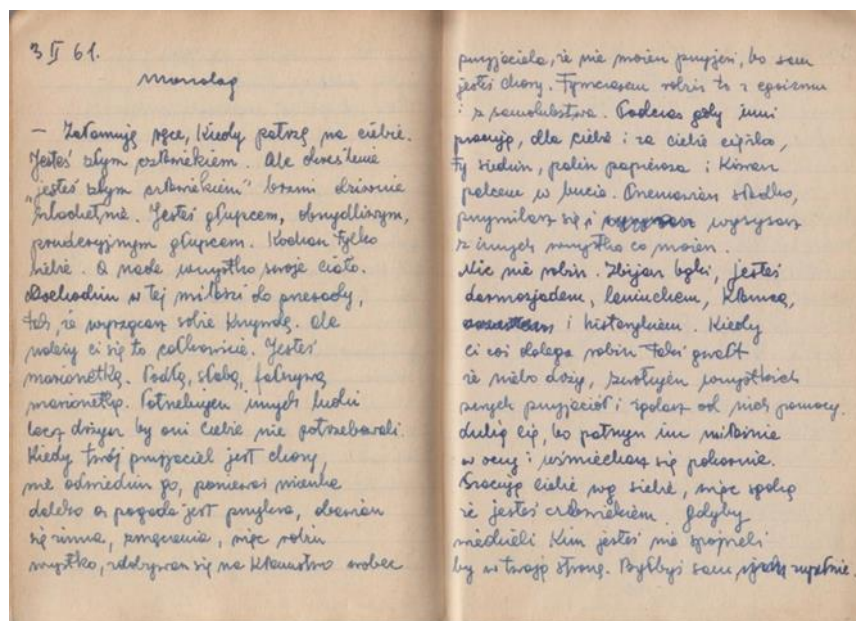 3 II 61.
Monolog
– Załamuję ręce, kiedy patrzę na ciebie.
Jesteś złym człowiekiem. Ale określenie
„jesteś złym człowiekiem" brzmi dziwnie
szlachetnie. Jesteś głupcem, obrzydliwym,
pruderyjnym głupcem. Kochasz tylko
siebie. A nade wszystko swoje ciało.
Dochodzisz w tej miłości do przesady,
tak, że wyrządzasz sobie krzywdę. Ale
należy ci się to całkowicie. Jesteś
marionetką. Podłą, słabą, fałszywą
marionetką. Potrzebujesz innych ludzi
lecz drżysz by oni ciebie nie potrzebowali.
Kiedy twój przyjaciel jest chory,
nie odwiedzisz go, ponieważ mieszka
daleko a pogoda jest przykra, obawiasz
się zimna, zmęczenia, więc robisz
wszystko, zdobywasz się na kłamstwo wobec
przyjaciela, że nie możesz przyjść, bo sam
jesteś chory. Tymczasem robisz to z egoizmu
i z samolubstwa. Podczas gdy inni
pracują, dla ciebie i za ciebie ciężko,
Ty siedzisz, palisz papierosa i kiwasz
palcem w bucie. Przemawiasz słodko,
przymilasz się i wysysasz
z innych wszystko co możesz.
Nic nie robisz. Zbijasz bąki, jesteś
darmozjadem, leniuchem, kłamcą,
i histerykiem. Kiedy
ci coś dolega robisz taki gwałt
że niebo drży, zwołujesz wszystkich
swych przyjaciół i żądasz od nich pomocy.
Lubią cię, bo patrzysz im miłośnie
w oczy i uśmiechasz się pokornie.
Szacują ciebie wg siebie, więc sądzą
że jesteś człowiekiem. Gdyby
wiedzieli kim jesteś nie spojrzeli
by w twoją stronę. Byłbyś sam, zupełnie.